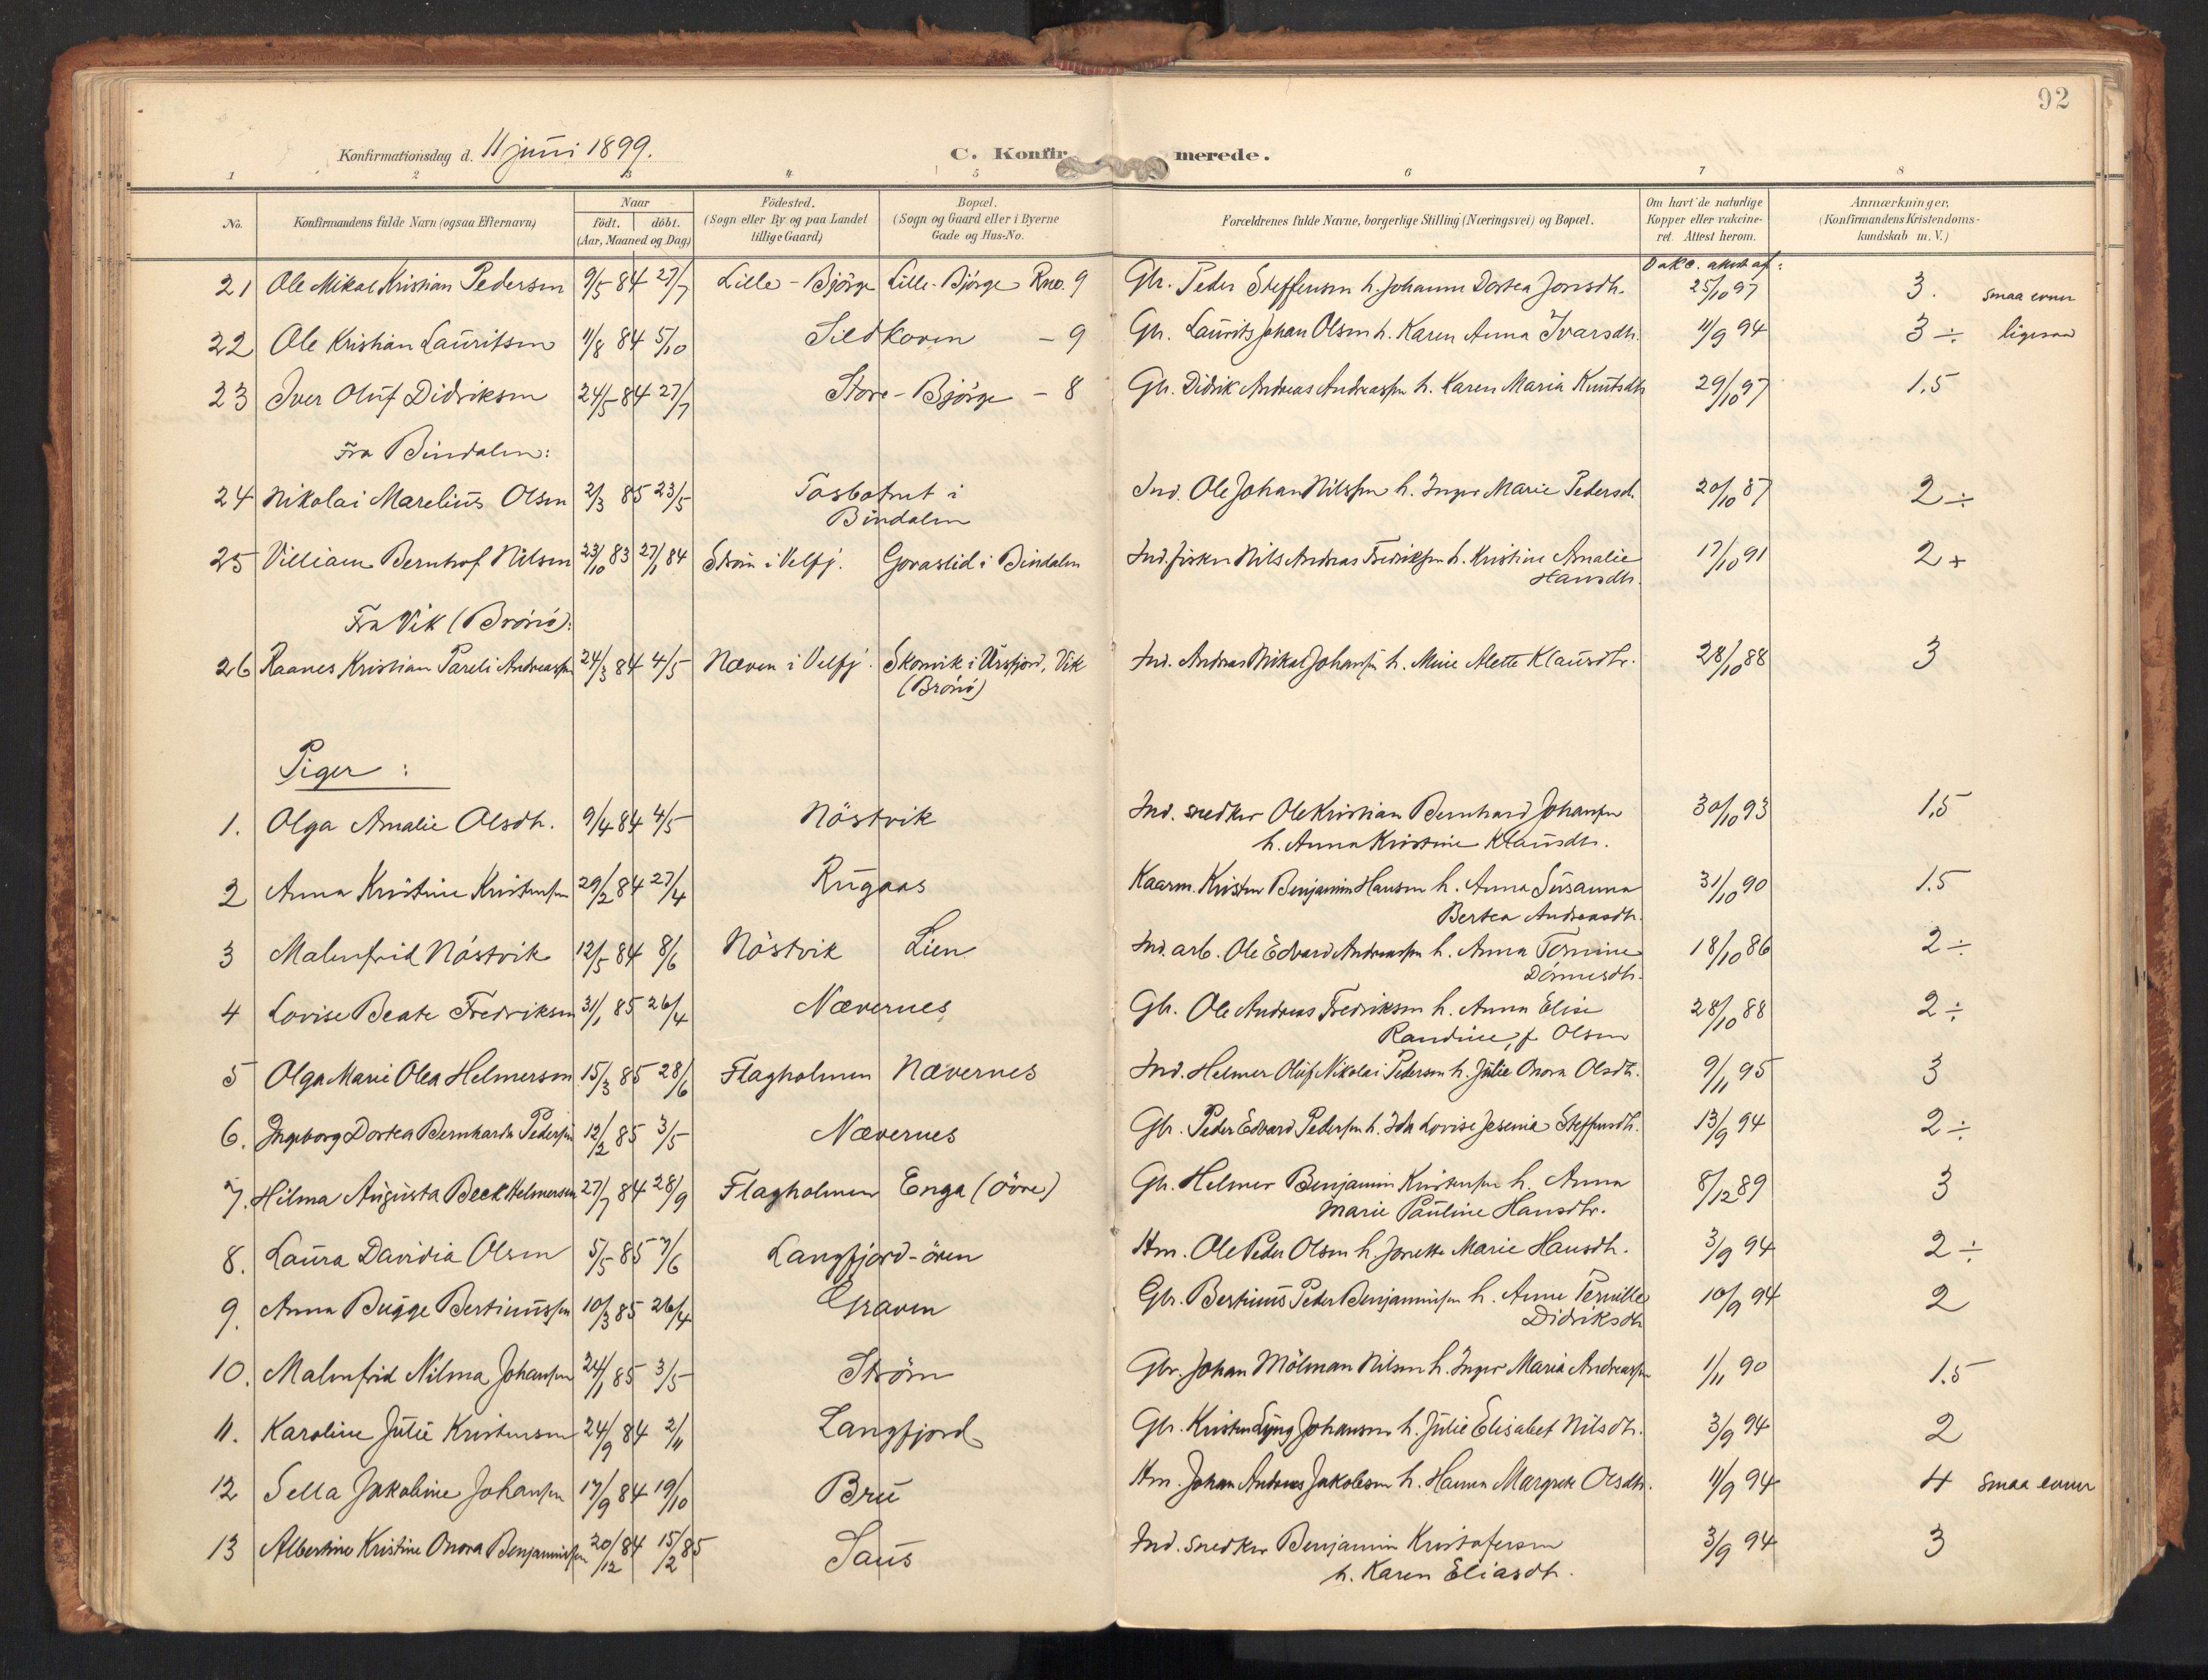 92
Konfirmationsdag d. 11 juni 1899.
C. Konfirmerede.
1 2 3 4 5 6 7 8
No. Konfirmandens fulde Navn (ogsaa Efternavn) Naar født. døbt. (Aar, Maaned og Dag) Fødested. (Sogn eller By og paa Landet tillige Gaard) Bopæl. (Sogn og Gaard eller i Byerne Gade og Hus-No. Forældrenes fulde Navne, borgerlige Stilling (Næringsvei) og Bopæl. Om havt de naturlige Kopper eller vaccineret. Attest herom. Anmærkninger. (Konfirmandens Kristendomskundskab m. V.)
21 Ole Mikal Kristian Pedersen 9/5 84 27/7 Lille-Bjørge Lille-Bjørge Rno. 9 Gbr. Peder Steffensen h. Johanna Dortea Jonsdtr. 25/10 97 3. smaa evner
22 Ole Kristian Lauritsen 11/8 84 5/10 Sildkoven - 9 Gbr. Laurits Johan Olsen h. Karen Anna Ivarsdtr. 11/9 94 3 ÷ ligesaa
23 Iver Oluf Didriksen 24/5 84 27/7 Store-Bjørge - 8 Gbr. Didrik Andreas Andreassen h. Karen Maria Knutsdtr 29/10 97 1.5
Fra Bindalen:
24 Nikolai Marelius Olsen 2/3 85 23/5 Tosbotnet i Ind. Ole Johan Nilssen h. Inger Marie Pedersd. 20/10 87 2 ÷
Bindalen
25 Villiam Bernhof Nilsen 23/10 83 27/1 84 Strøm i Velfj. Goraslid i Bindalen Ind. fisker Nils Andreas Fredriksen h. Kristine Amalie 17/10 91 2 +
Hansdtr.
Fra Vik (Brønø):
26 Raanes Kristian Pareli Andreassen 24/3 84 4/5 Næven i Velfj. Skomvik i Ursfjord, Vik Ind. Andreas Mikal Johansen h. Mine Alette Klausdtr. 28/10 88 3
(Brønø)
Piger:
1. Olga Amalie Olsdtr. 9/4 84 4/5 Nöstvik Ind. snedker Ole Kristian Bernhard Johansen 30/10 93 1,5
h. Anna Kristine Klausdtr.
2 Anna Kristine Kristensen 29/2 84 27/4 Rugaas Kaarm. Kristen Benjamin Hansen h. Anna Susanna 31/10 90 1.5
Bertea Andreasdtr.
3 Malmfrid Nöstvik 12/5 84 8/6 Nöstvik Lien Ind. arb. Ole Edvard Andreassen h. Anna Tomine 18/10 86 2 ÷
Dönnesdtr.
4 Lovise Beate Fredriksen 31/1 85 26/4 Nævernes Gbr. Ole Andreas Fredriksen h. Anna Elise 28/10 88 2 ÷
Randine, f. Olsen
5 Olga Marie Olea Helmersen 15/3 85 28/6 Flagholmen Nævernes Ind. Helmer Oluf Nikolai Pedersen h. Julie Onora Olsdtr. 9/11 95 3
6. Ingeborg Dortea Bernharda Pedersen 12/2 85 3/5 Nævernes Gbr. Peder Edvard Pedersen h. Ida Lovise Jesenia Steffensdtr. 13/9 94 2 ÷
7. Hilma Augusta Beck Helmersen 27/7 84 28/9 Flagholmen Enga (övre) Gbr. Helmer Benjamin Kristensen h. Anna 8/12 89 3
Marie Pauline Hansdtr.
8. Laura Davidia Olsen 5/5 85 7/6 Langfjord-ören Hm. Ole Peder Olsen h. Jonette Marie Hansdtr. 3/9 94 2 ÷
9. Anna Bugge Bertinussen 10/3 85 26/4 Graven Gbr. Bertinus Peder Benjaminsen h. Anne Pernille 10/9 94 2
Didriksdtr
10. Malmfrid Nilma Johansen 24/1 85 3/5 Ström Gbr. Johan Mölman Nilsen h. Inger Maria Andreassen 1/11 90 1.5
11. Karoline Julie Kristensen 24/9 84 2/11 Langfjord Gbr. Kristen Lyng Johansen h. Julie Elisabet Nilsdtr. 3/9 94 2
12 Sella Jakobine Johansen 17/9 84 19/10 Bru Hm. Johan Andreas Jakobsen h. Hanna Margrete Olsdtr. 11/9 94 4 smaa evner
13 Albertine Kristine Onora Benjaminsen 20/12 84 15/2 85 Saus Ind. snedker Benjamin Kristofersen 3/9 94 3
h. Karen Eliasdtr.